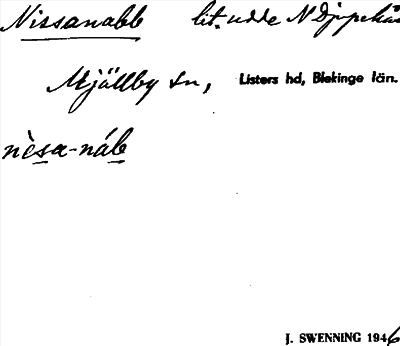 Nissanabb lit. udde N Djppekås
Mjällby sn, Listers hd, Blekinge län.
nèsa-náb
J. SWENNING 1946